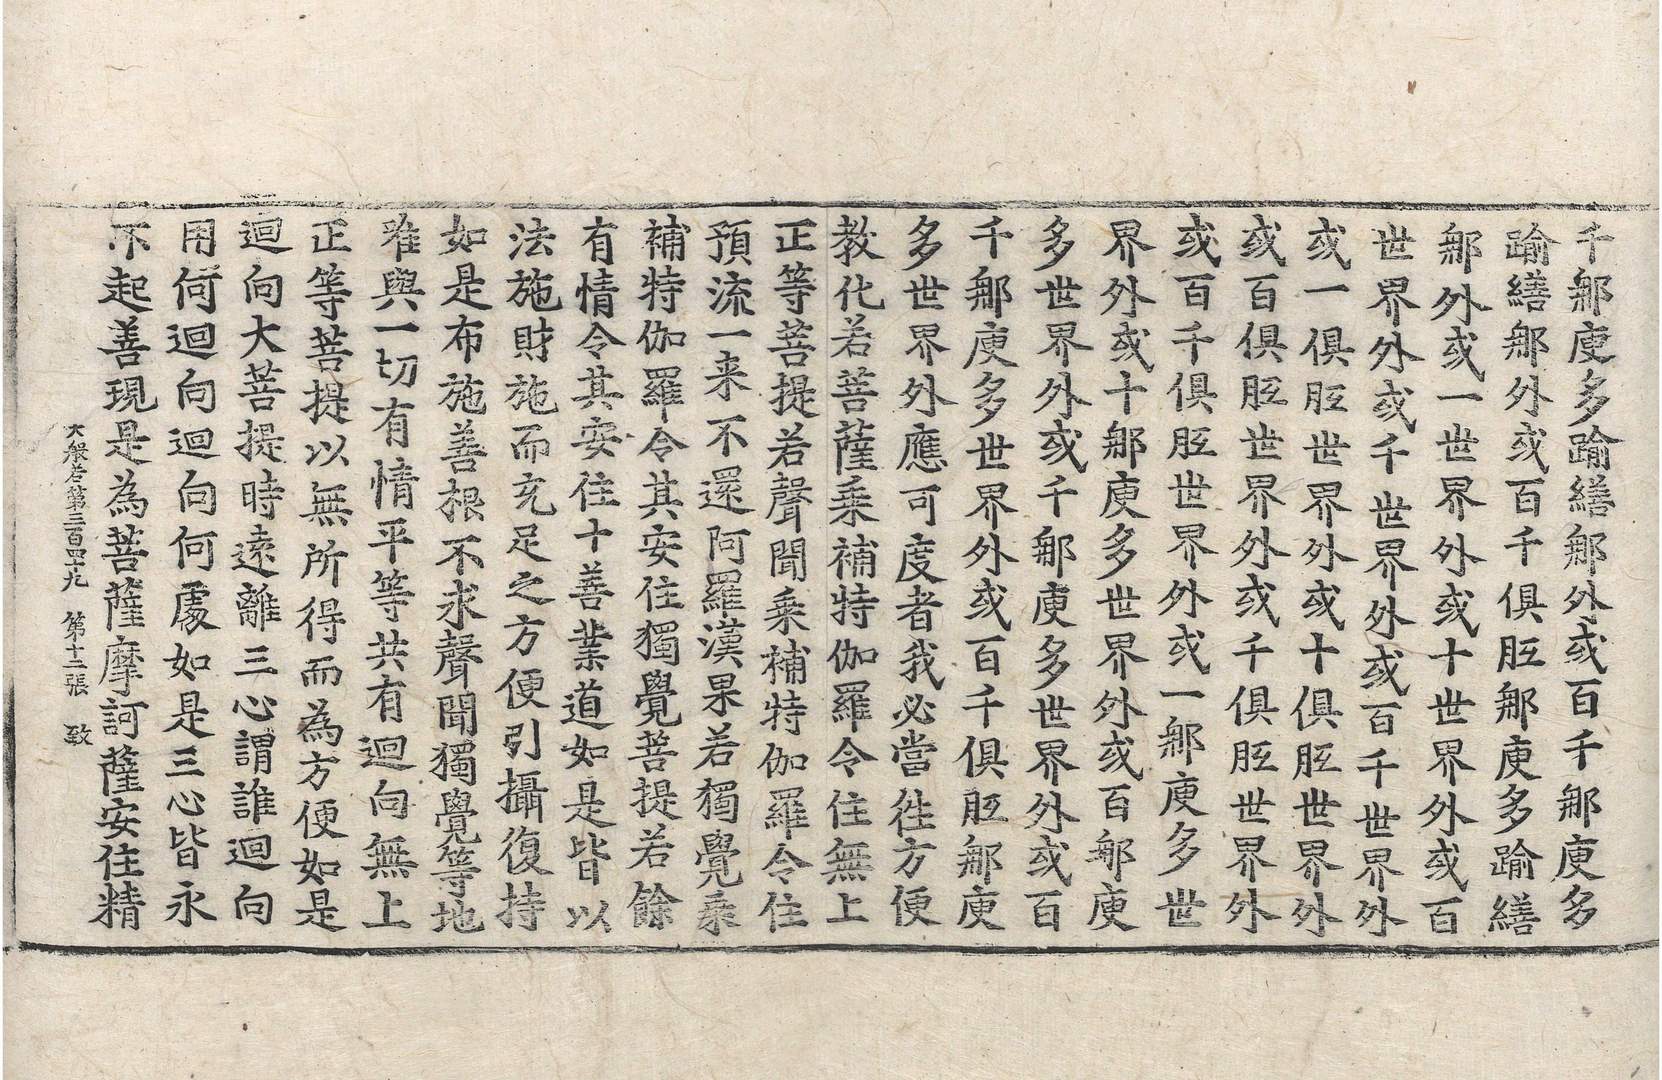 千那庾多踰繕那外或百千那庾多
踰繕那外或百千俱胝那庾多踰繕
那外或一世界外或十世界外或百
世界外或千世界外或百千世界外
或一俱胝世界外或十俱胝世界外
或百俱胝世界外或千俱胝世界外
或百千俱胝世界外或一那庾多世
界外或十那庾多世界外或百那庾
多世界外或千那庾多世界外或百
千那庾多世界外或百千俱胝那庾
多世界外應可度者我必當往方便
教化若菩薩乘補特伽羅令住無上
正等菩提若聲聞乘補特伽羅令住
預流一来不還阿羅漢果若獨覺乘
補特伽羅令其安住獨覺菩提若餘
有情令其安住十善業道如是皆以
法施財施而充足之方便引攝復持
如是布施善根不求聲聞獨覺等地
唯與一切有情平等共有迴向無上
正等菩提以無所得而為方便如是
迴向大菩提時遠離三心謂誰迴向
用何迴向迴向何處如是三心皆永
不起善現是為菩薩摩訶薩安住精
大般若第三百四十九 第十二張 致